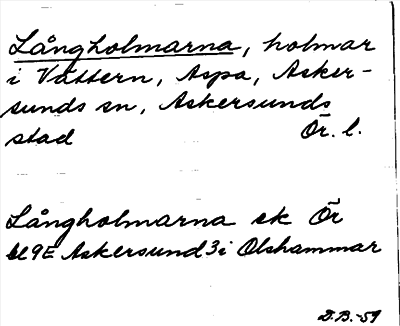 Långholmarna, holmar
i Vättern, Aspa, Asker-
sunds sn, Askersunds
stad Ör. l.
Långholmarna ek Ör
bl 9E Askersund 3i Olshammar
D.B. -59